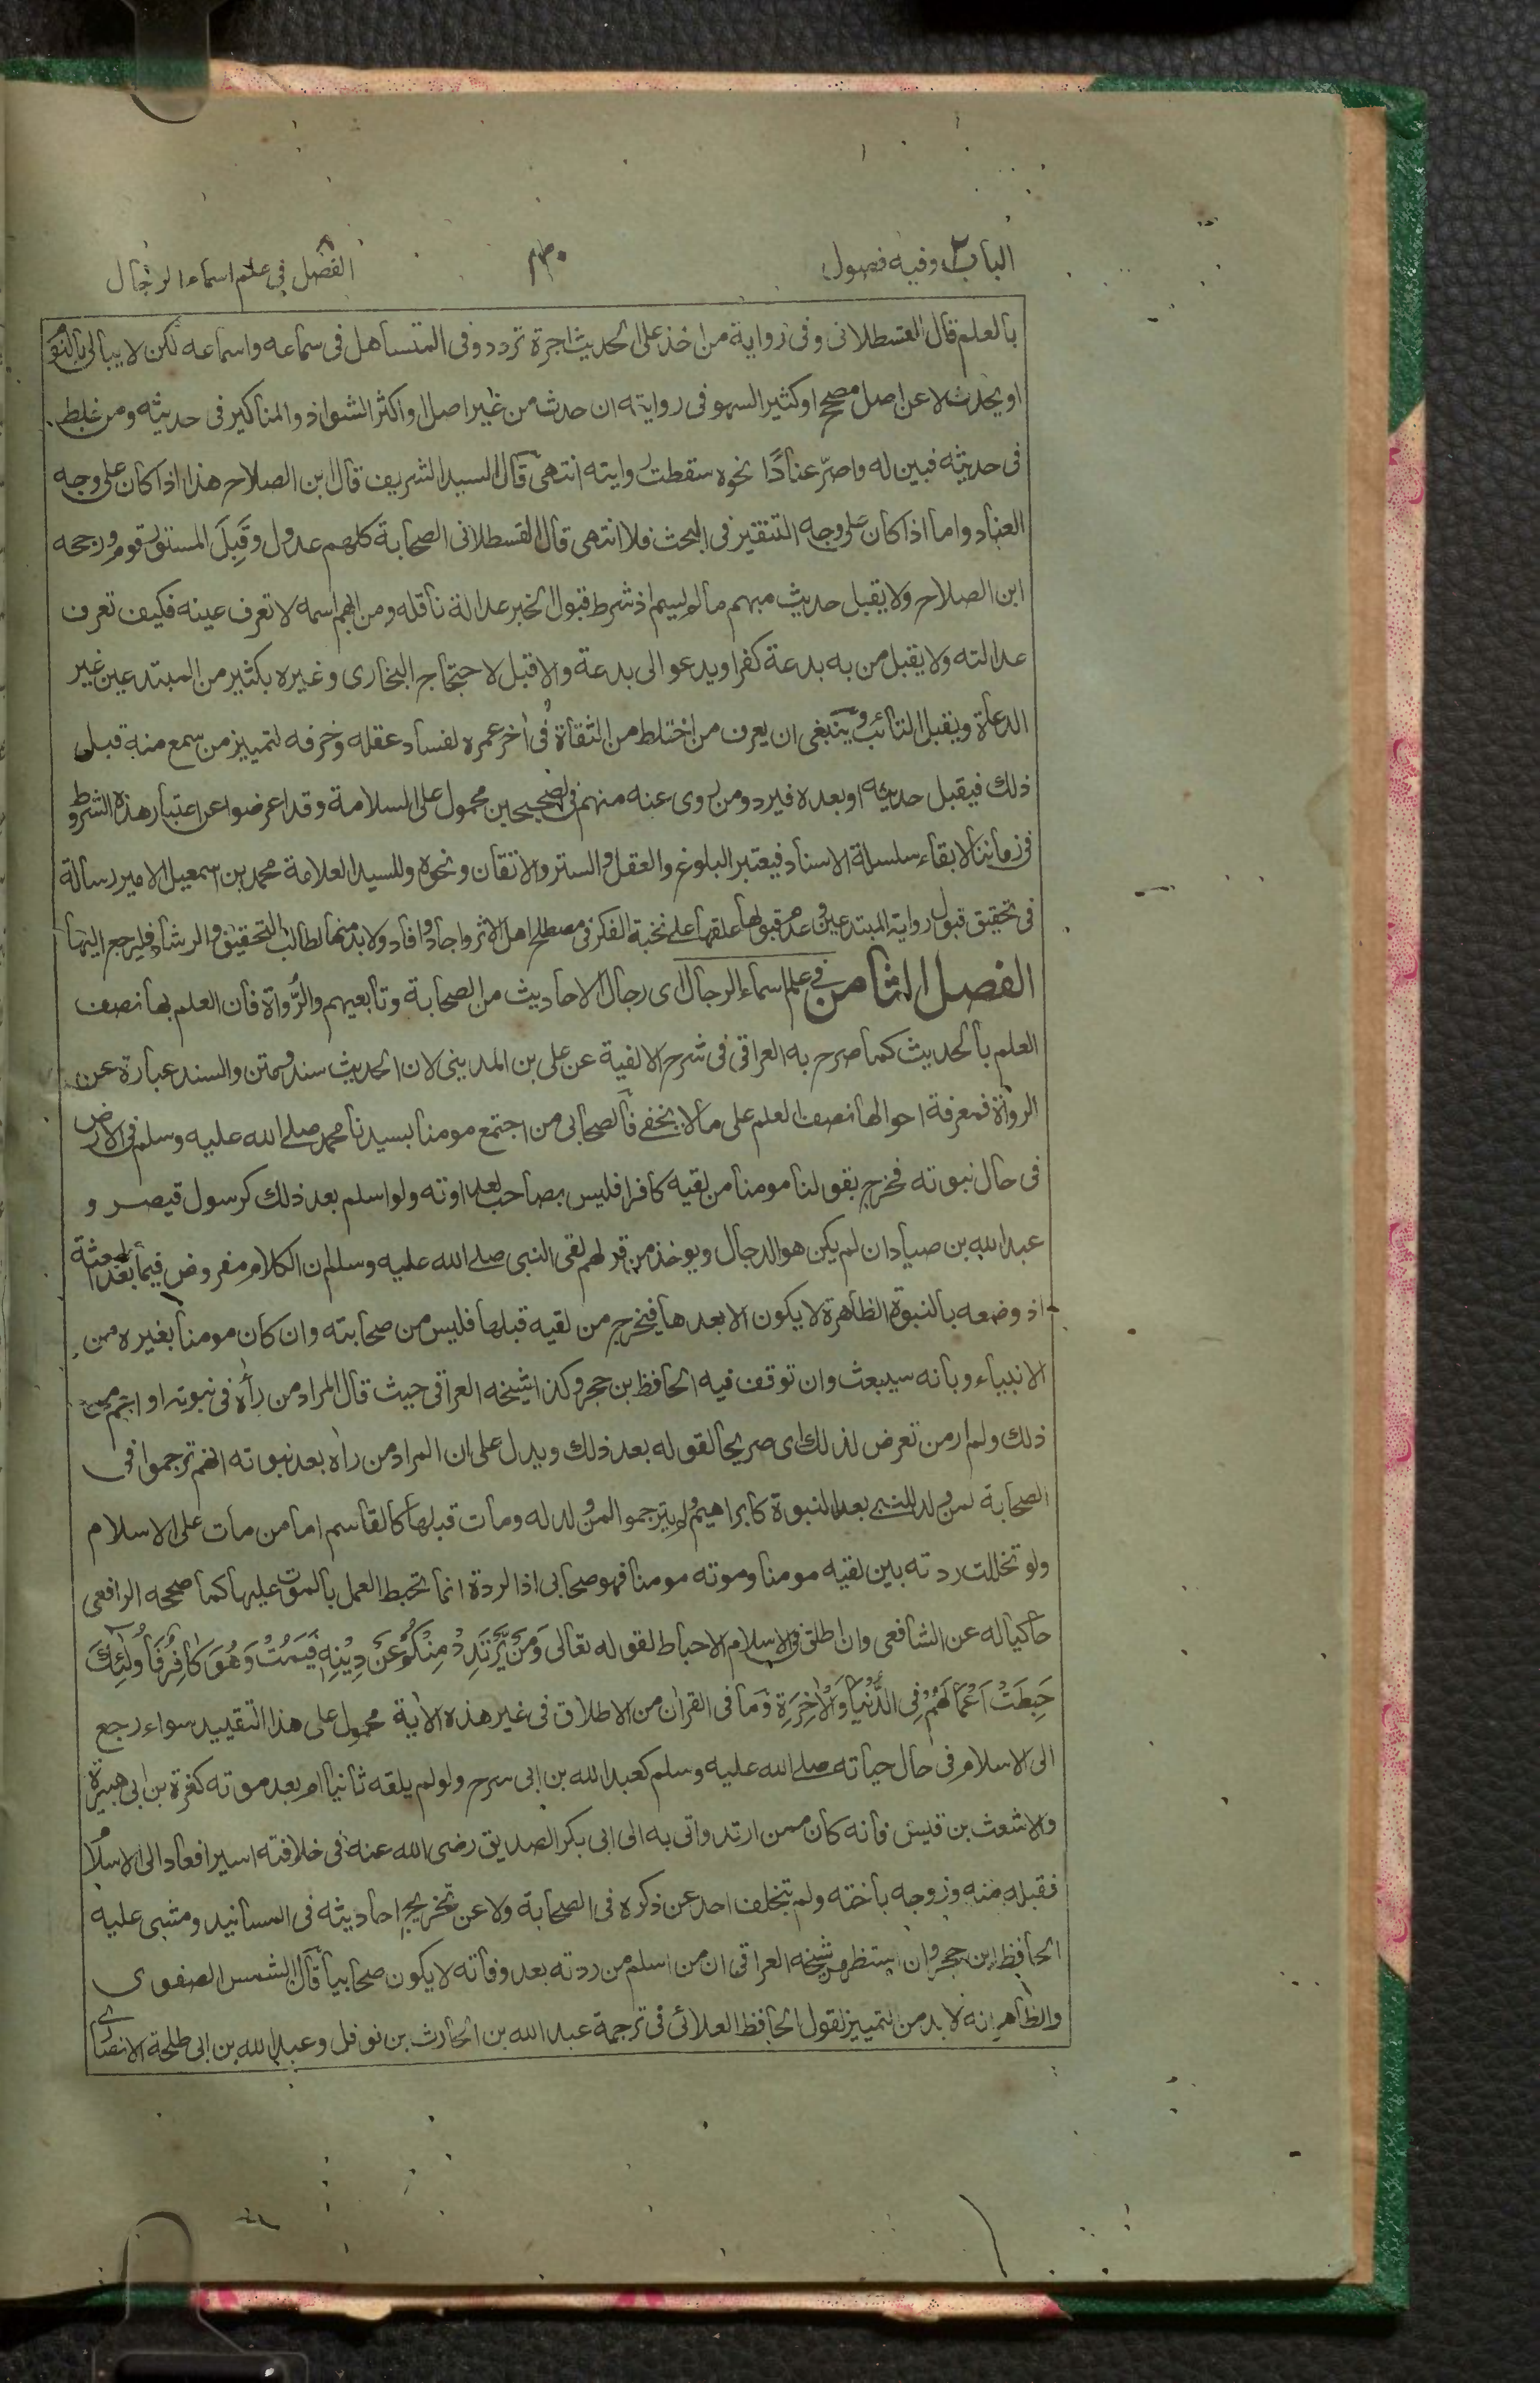 الباب٢ وفيه فصول
٣٠
الفصل ٨ في علم اسماء الرجال
بالعلم قال القسطلانى وفى رواية من اخذ على الحديث اجرة تردد وفى المتساهل فى سماعه واسماعه لكن لا يبالى بالنوم
او يحدث لا عن اصل مصحح اوكثير السهو فى روايته ان حدث من غير اصل او اكثر الشواذ والمناكير فى حديثه ومن غلط
فى حديثه فبين له واصرّ عنادًا نحوه سقطت روايته انتهى قال السيد الشريف قال ابن الصلاح هذا اذا كان على وجه
العناد واما اذا كان على وجه التنقير فى البحث فلا انتهى قال القسطلانى الصحابة كلهم عدول وقَبِلَ المستور قوم ورجحه
ابن الصلاح ولا يقبل حديث مبهم مالم يسم اذ شرط قبول الخبر عدالة ناقله ومن ابهم اسمه لا تعرف عينه فكيف تعرف
عدالته ولا يقبل من به بدعة كفر او يدعو الى بدعة والا قبل لاحتجاج البخارى وغيره بكثير من المبتدعين غير
الدعاة ويقبل التائب وينبغى ان يعرف من اختلط من الثقاة فى اخر عمره لفساد عقله وخرفه لتمييز من سمع منه قبل
ذلك فيقبل حديثه اوبعده فيرد ومن روى عنه منهم فى الصحيحين محمول على السلامة وقد اعرضوا عن اعتبار هذه الشروط
فى زماننا لابقاء سلسلة الاسناد فيعتبر البلوغ والعقل والستر والاتقان ونحوه وللسيد العلامة محمد بن اسمعيل الامير رسالة
فى تحقيق قبول رواية المبتدعين وعدم قبولها علقها على نخبة الفكر فى مصطلح اهل الاثر واجاد وافاد ولابد منها لطالب التحقيق والرشاد فليرجع اليها
الفصل الثامن فى علم اسماء الرجال اى رجال الاحاديث من الصحابة وتابعيهم والرُّواة فان العلم بها نصف
العلم بالحديث كما صرح به العراقى فى شرح الالفية عن على بن المدينى لان الحديث سند ومتن والسند عبارة عن
الرواة فمعرفة احوالها نصف العلم على مالا يخفى فالصحابى من اجتمع مومنا بسيدنا محمد صلى الله عليه وسلم فى الارض
فى حال نبوته فخرج بقولنا مومنا من لقيه كافرا فليس بصاحب لعداوته ولو اسلم بعد ذلك كرسول قيصر و
عبدالله بن صياد ان لم يكن هو الدجال ويوخذ من قولهم لقى النبى صلى الله عليه وسلم ان الكلام مفروض فيما بعد بعثته
اذ وضعه بالنبوة الظاهرة لا يكون الا بعدها فيخرج من لقيه قبلها فليس من صحابته وان كان مومنا بغيره من
الانبياء وبانه سيبعث وان توقف فيه الحافظ بن حجر وكذا شيخه العراقى حيث قال المراد من رأه فى نبوته او اعم من
ذلك ولم ار من تعرض لذلك اى صريحا لقوله بعد ذلك ويدل على ان المراد من راه بعد نبوته انهم ترجموا فى
الصحابة لمن ولد للنبى بعد النبوة كابراهيم ولم يترجموا لمن ولد له ومات قبلها كالقاسم اما من مات على الاسلام
ولو تخللت ردته بين لقيه مومنا وموته مومنا فهو صحابى اذ الردة انما تحبط العمل بالموت عليها كما صححه الرافعى
حاكيا له عن الشافعى وان اطلق فى الاسلام الاحباط لقوله تعالى وَمَنْ يَّرْتَدِدْ مِنْكُمْ عَنْ دِيْنِهٖ فَيَمُتْ وَهُوَ كَافِرٌ فَاُولٰئِكَ
حَبِطَتْ اَعْمَالُهُمْ فِى الدُّنْيَا وَالْاٰخِرَةِ وَما فى القران من الاطلاق فى غير هذه الاية محمول على هذا التقييد سواء رجع
الى الاسلام فى حال حياته صلى الله عليه وسلم كعبد الله بن ابى سرح ولو لم يلقه ثانيا ام بعد موته كقرة بن ابى هبيرة
والاشعث بن قيس فانه كان ممن ارتد واتى به الى ابى بكر الصديق رضى الله عنه فى خلافته اسيرا فعاد الى الاسلام
فقبله منه وزوجه باخته ولم يتخلف احد عن ذكره فى الصحابة ولا عن تخريج احاديثه فى المسانيد ومشى عليه
الحافظ ابن حجر وان استظهر شيخه العراقى ان من اسلم من ردته بعد وفاته لا يكون صحابيا قال الشمس الصفوى
والظاهر انه لا بد من التمييز لقول الحافظ العلائى فى ترجمة عبد الله بن الحارث بن نوفل وعبد الله بن ابى طلحة الانصارى